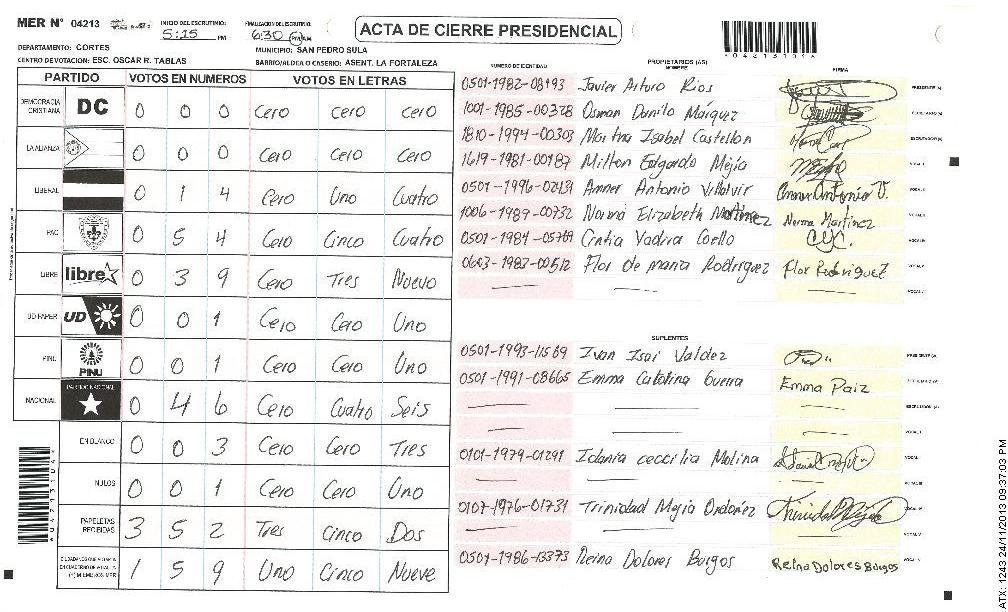 MER Nº 04213
INICIO DEL ESCRUTINIO: 5:15 PM
FINALIZACION DEL ESCRUTINIO: 6:30 PM/AM
ACTA DE CIERRE PRESIDENCIAL
*04213101*
DEPARTAMENTO: CORTES
MUNICIPIO: SAN PEDRO SULA
CENTRO DE VOTACION: ESC. OSCAR R. TABLAS
BARRIO/ALDEA O CASERIO: ASENT. LA FORTALEZA
PARTIDO VOTOS EN NUMEROS VOTOS EN LETRAS
DEMOCRACIA CRISTIANA DC 0 0 0 Cero Cero Cero
LA ALIANZA 0 0 0 Cero Cero Cero
LIBERAL 0 1 4 Cero Uno Cuatro
PAC 0 5 4 Cero Cinco Cuatro
LIBRE libre 0 3 9 Cero Tres Nuevo
UD FAPER UD 0 0 1 Cero Cero Uno
PINU PINU 0 0 1 Cero Cero Uno
NACIONAL PARTIDO NACIONAL 0 4 6 Cero Cuatro Seis
EN BLANCO 0 0 3 Cero Cero Tres
NULOS 0 0 1 Cero Cero Uno
PAPELETAS RECIBIDAS 3 5 2 Tres Cinco Dos
CIUDADANOS QUE VOTARON EN CUADERNO DE VOTACION (+) MIEMBROS MER 1 5 9 Uno Cinco Nueve
NUMERO DE IDENTIDAD PROPIETARIOS (AS) NOMBRE FIRMA
0501-1982-08493 Javier Arturo Rios PRESIDENTE (A)
1001-1985-00328 Osman Danilo Márquez SECRETARIO (A)
1810-1994-00303 Martha Isabel Castellon ESCRUTADOR (A)
1619-1981-00187 Milton Edgardo Mejía VOCAL I
0501-1996-02431 Anner Antonio Villalvir VOCAL II
1006-1989-00732 Norma Elizabeth Martinez Norma Martinez VOCAL III
0501-1984-05764 Cintia Yadira Coello VOCAL IV
0603-1983-00512 Flor de maria Rodriguez Flor Rodriguez VOCAL V
SUPLENTES
0501-1993-11569 Ivan Isai Valdez PRESIDENTE (A)
0501-1991-08665 Emma Catalina Guerra Emma Paiz
ESCRUTADOR (A)
0101-1979-01291 Idania ceccilia Molina VOCAL
0107-1976-01731 Trinidad Mejia Ordoñez Trinidad Mejia
0501-1986-13373 Reina Dolores Borgos Reina Dolores Borgos
ATX: 1243 24/11/2013 09:37:03 PM